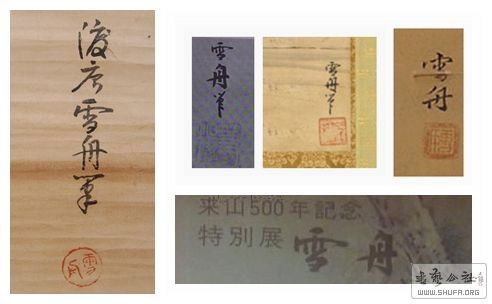 渡唐雪舟筆
雪舟筆
雪舟筆
雪舟
来山500年記念
特別展 雪舟
书艺公社
WWW.SHUFA.ORG